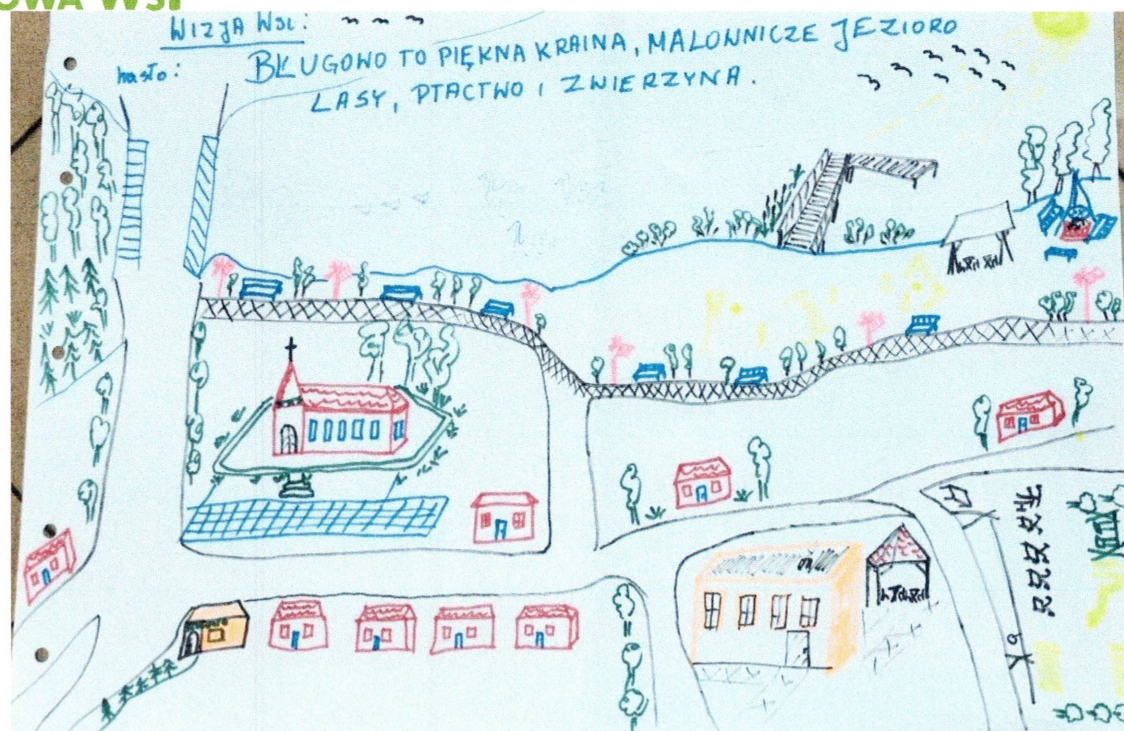 OWA WSI
WIZJA WSI:
hasło: BŁUGOWO TO PIĘKNA KRAINA, MALOWNICZE JEZIORO
LASY, PTACTWO I ZWIERZYNA.